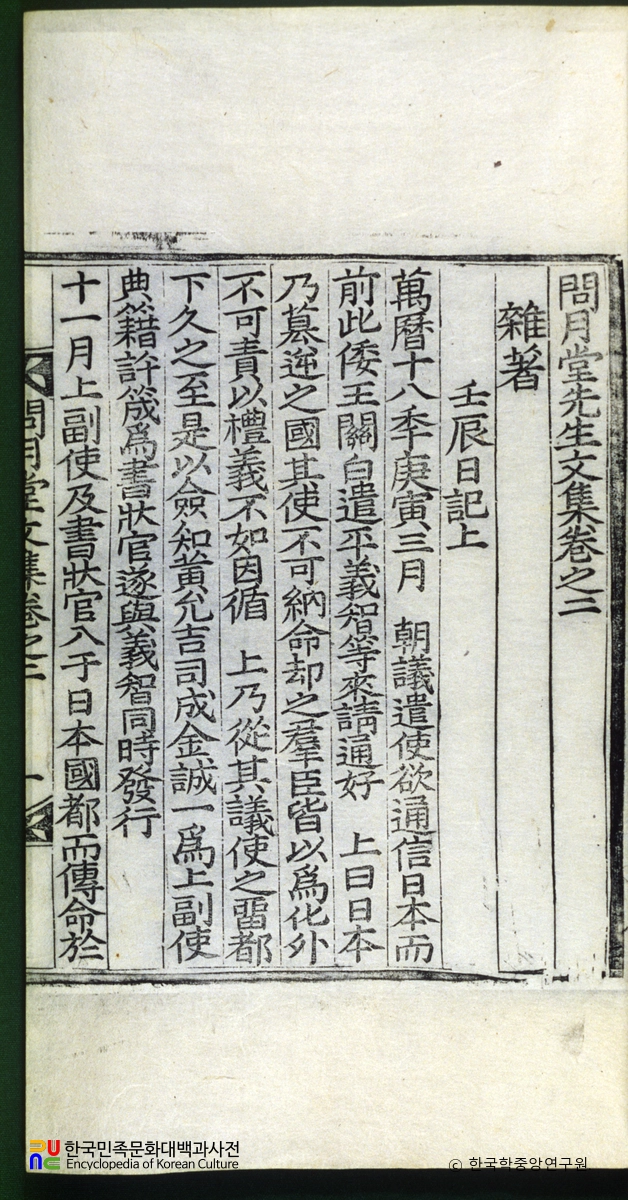 問月堂先生文集卷之三
雜著
壬辰日記上
萬曆十八年庚寅三月　朝議遣使欲通信日本而
前此倭王關白遣平義智等來請通好　上曰日本
乃簒逆之國其使不可納命却之羣臣皆以爲化外
不可責以禮義不如因循　上乃從其議使之留都
下久之至是以僉知黃允吉司成金誠一爲上副使
典籍許筬爲書狀官遂與義智同時發行
十一月上副使及書狀官入于日本國都而傳命於
問月堂文集卷之三 一
한국민족문화대백과사전
Encyclopedia of Korean Culture
© 한국학중앙연구원